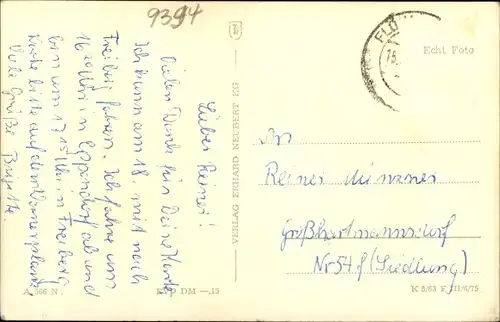 9394
Lieber Reiner!
Vielen Dank für Deine Karte
Ich kann am 18. mit nach
Freiberg fahren. Ich fahre um
16 20 Uhr in Eppendorf ab und
bin um 17 15 Uhr in Freiberg
Warte bitte auf dem
Viele Grüße
Brigitte.
VERLAG ERHARD NEUBERT KG
FL
15.
Echt Foto
An
Reiner
Großhartmannsdorf
Nr 54 f (Siedlung)
A 566 N.
EVP DM —,15
K 5/63 F III/6/75